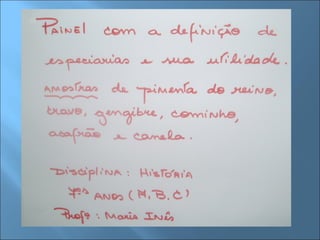 PAINEL com a definição de
especiarias e sua utilidade.
AMOSTRAS de pimenta do reino,
cravo, gengibre, cominho,
açafrão e canela.
DISCIPLINA: HISTÓRIA
7ºs ANOS (A, B, C)
Profª: Maria Inês